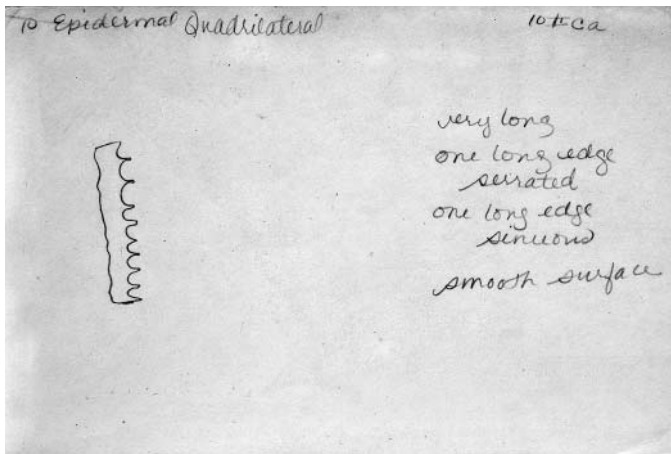 10 Epidermal Quadrilateral
very long
one long edge
serrated
one long edge
sinuous
smooth surface